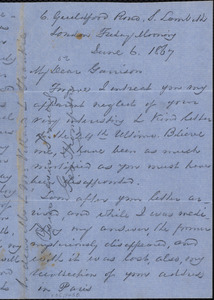 6 Guildford Road, S. Lambeth
London Friday Morning
June 6. 1867
My Dear Garrison
Forgive I intreat you my
apparent neglect of your
very interesting & Kind letter
of the 4th Ultimo. Believe
me I have been as much
mortified as you must have
been disappointed.
Soon after your letter ar-
rived and while I was mak-
ing my answer, the former
mysteriously disappeared, and
with it was lost, also, my
recollection of your address
in Paris